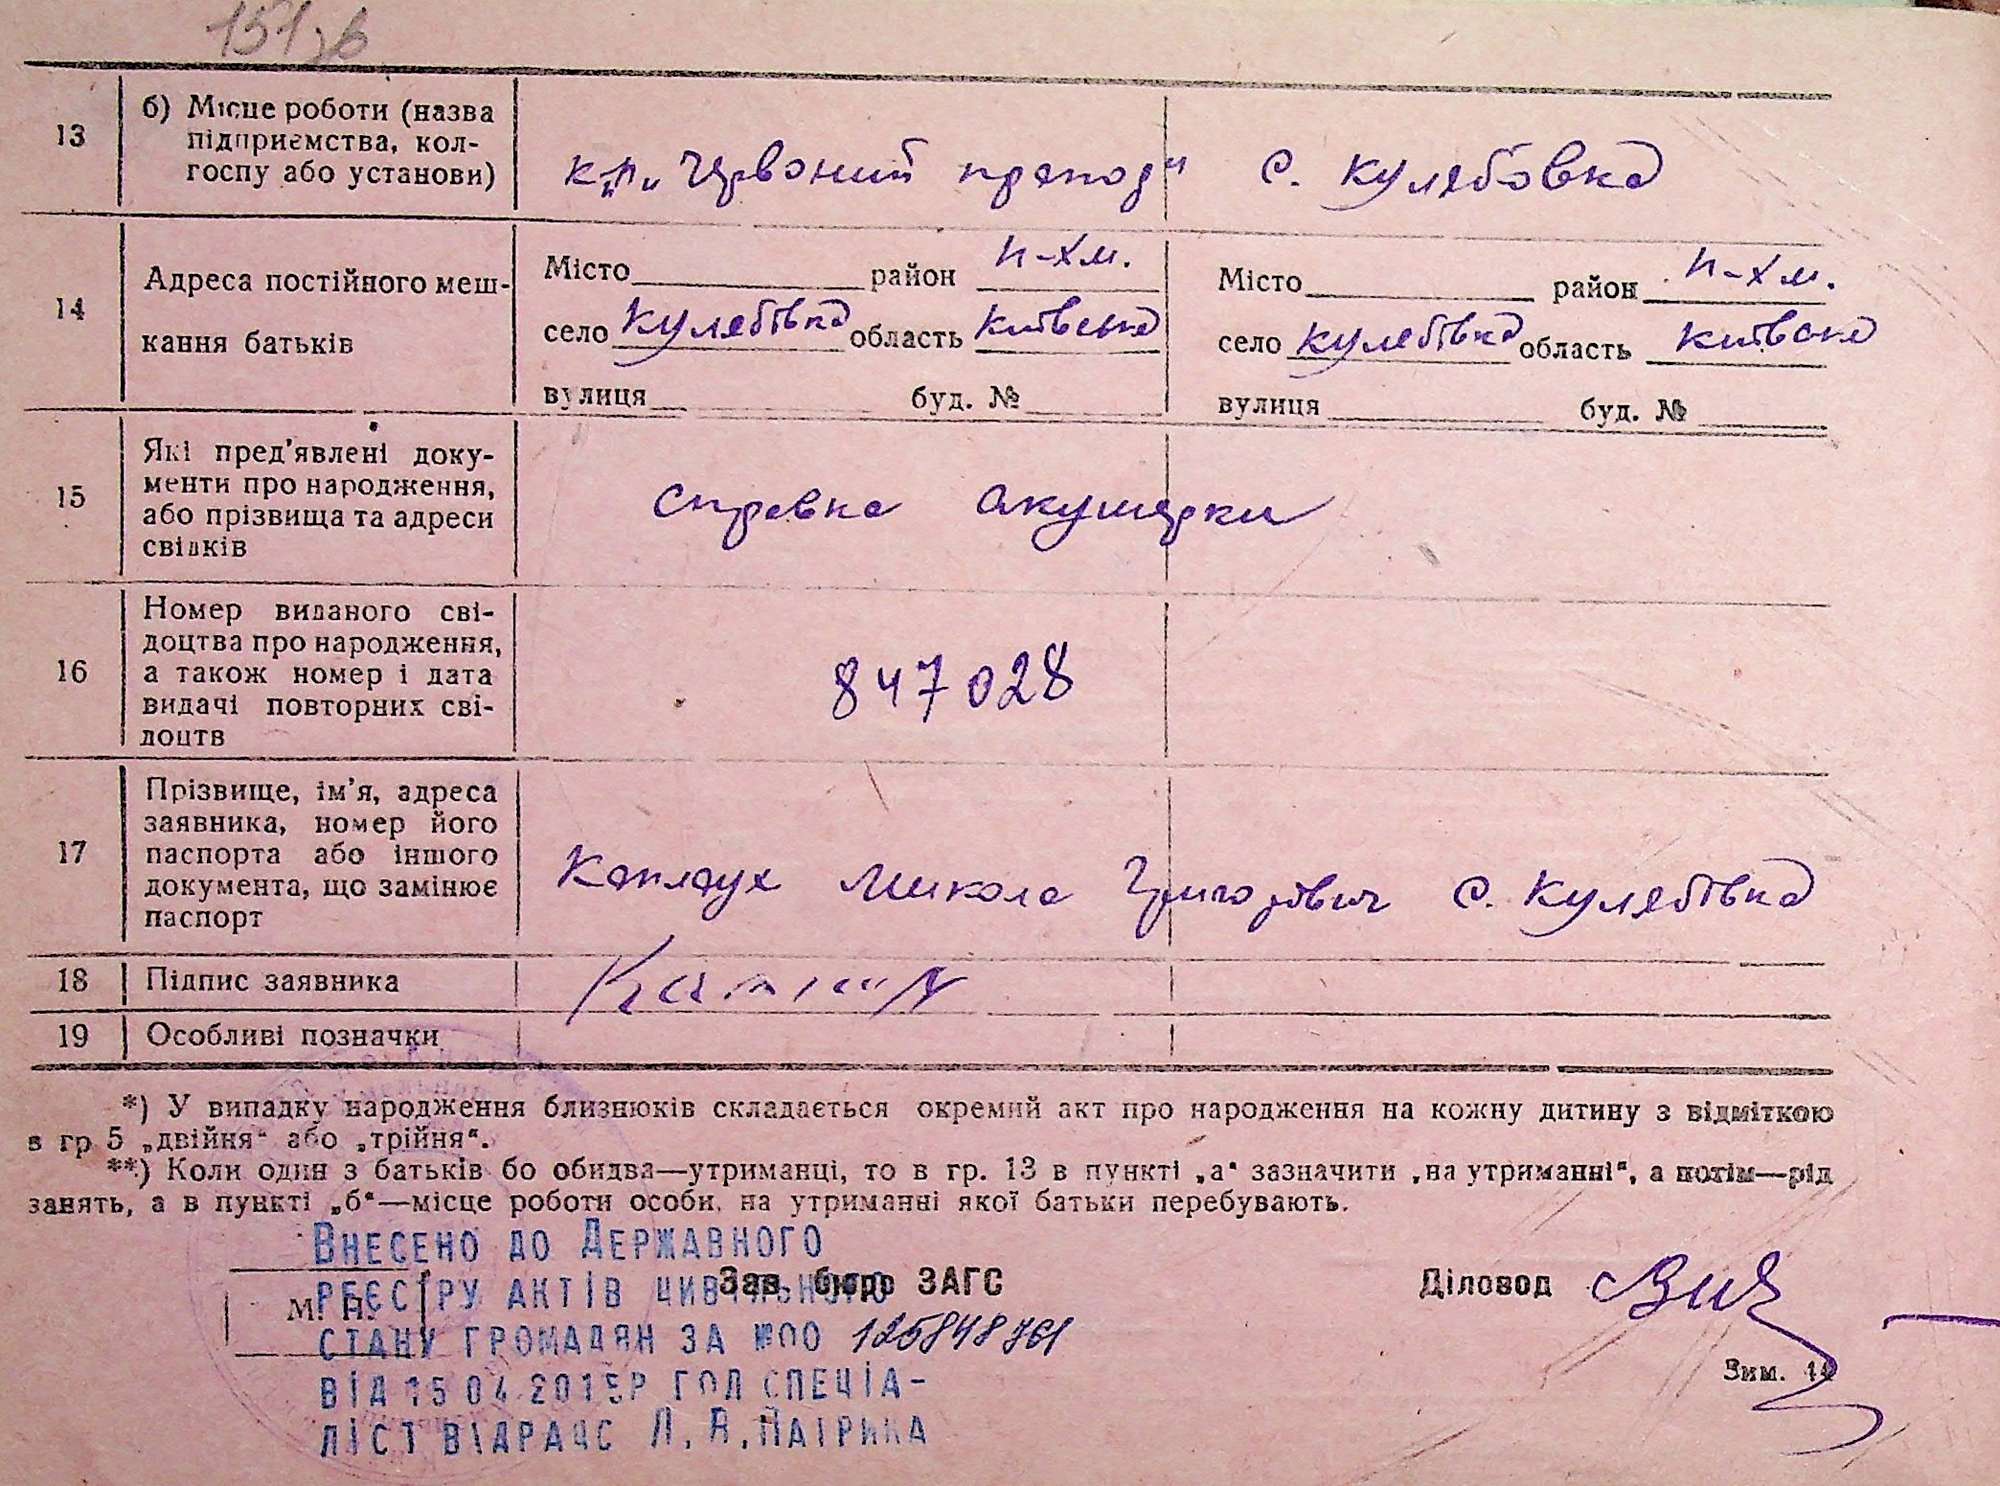 157 зв
13
б) Місце роботи (назва
підприємства, кол-
госпу або установи)
к„п„ Червоний прапор" с. Кулябовка
14
Адреса постійного меш-
кання батьків
Місто район П-Хм.
село Кулябівка область Київська
вулиця буд. №
Місто район П-Хм.
село Кулябівка область Київська
вулиця буд. №
15
Які пред'явлені доку-
менти про народження,
або прізвища та адреси
свідків
справка акушерки
16
Номер виданого сві-
доцтва про народження,
а також номер і дата
видачі повторних сві-
доцтв
847028
17
Прізвище, ім'я, адреса
заявника, номер його
паспорта або іншого
документа, що замінює
паспорт
Каплаух Микола Григорович с. Кулябівка
18
Підпис заявника
19
Особливі позначки
*) У випадку народження близнюків складається окремий акт про народження на кожну дитину з відміткою
в гр 5 „двійня" або „трійня".
**) Коли один з батьків бо обидва—утриманці, то в гр. 13 в пункті „а" зазначити „на утриманні", а потім—рід
занять, а в пункті „б"—місце роботи особи, на утриманні якої батьки перебувають.
Внесено до Державного
реєстру актів цивільного
стану громадян за №00 125848761
від 15 04 2015р гол спеціа-
ліст відрацс Л. В. Патрика
М. П.
Зав. бюро ЗАГС
Діловод
Зим. 14